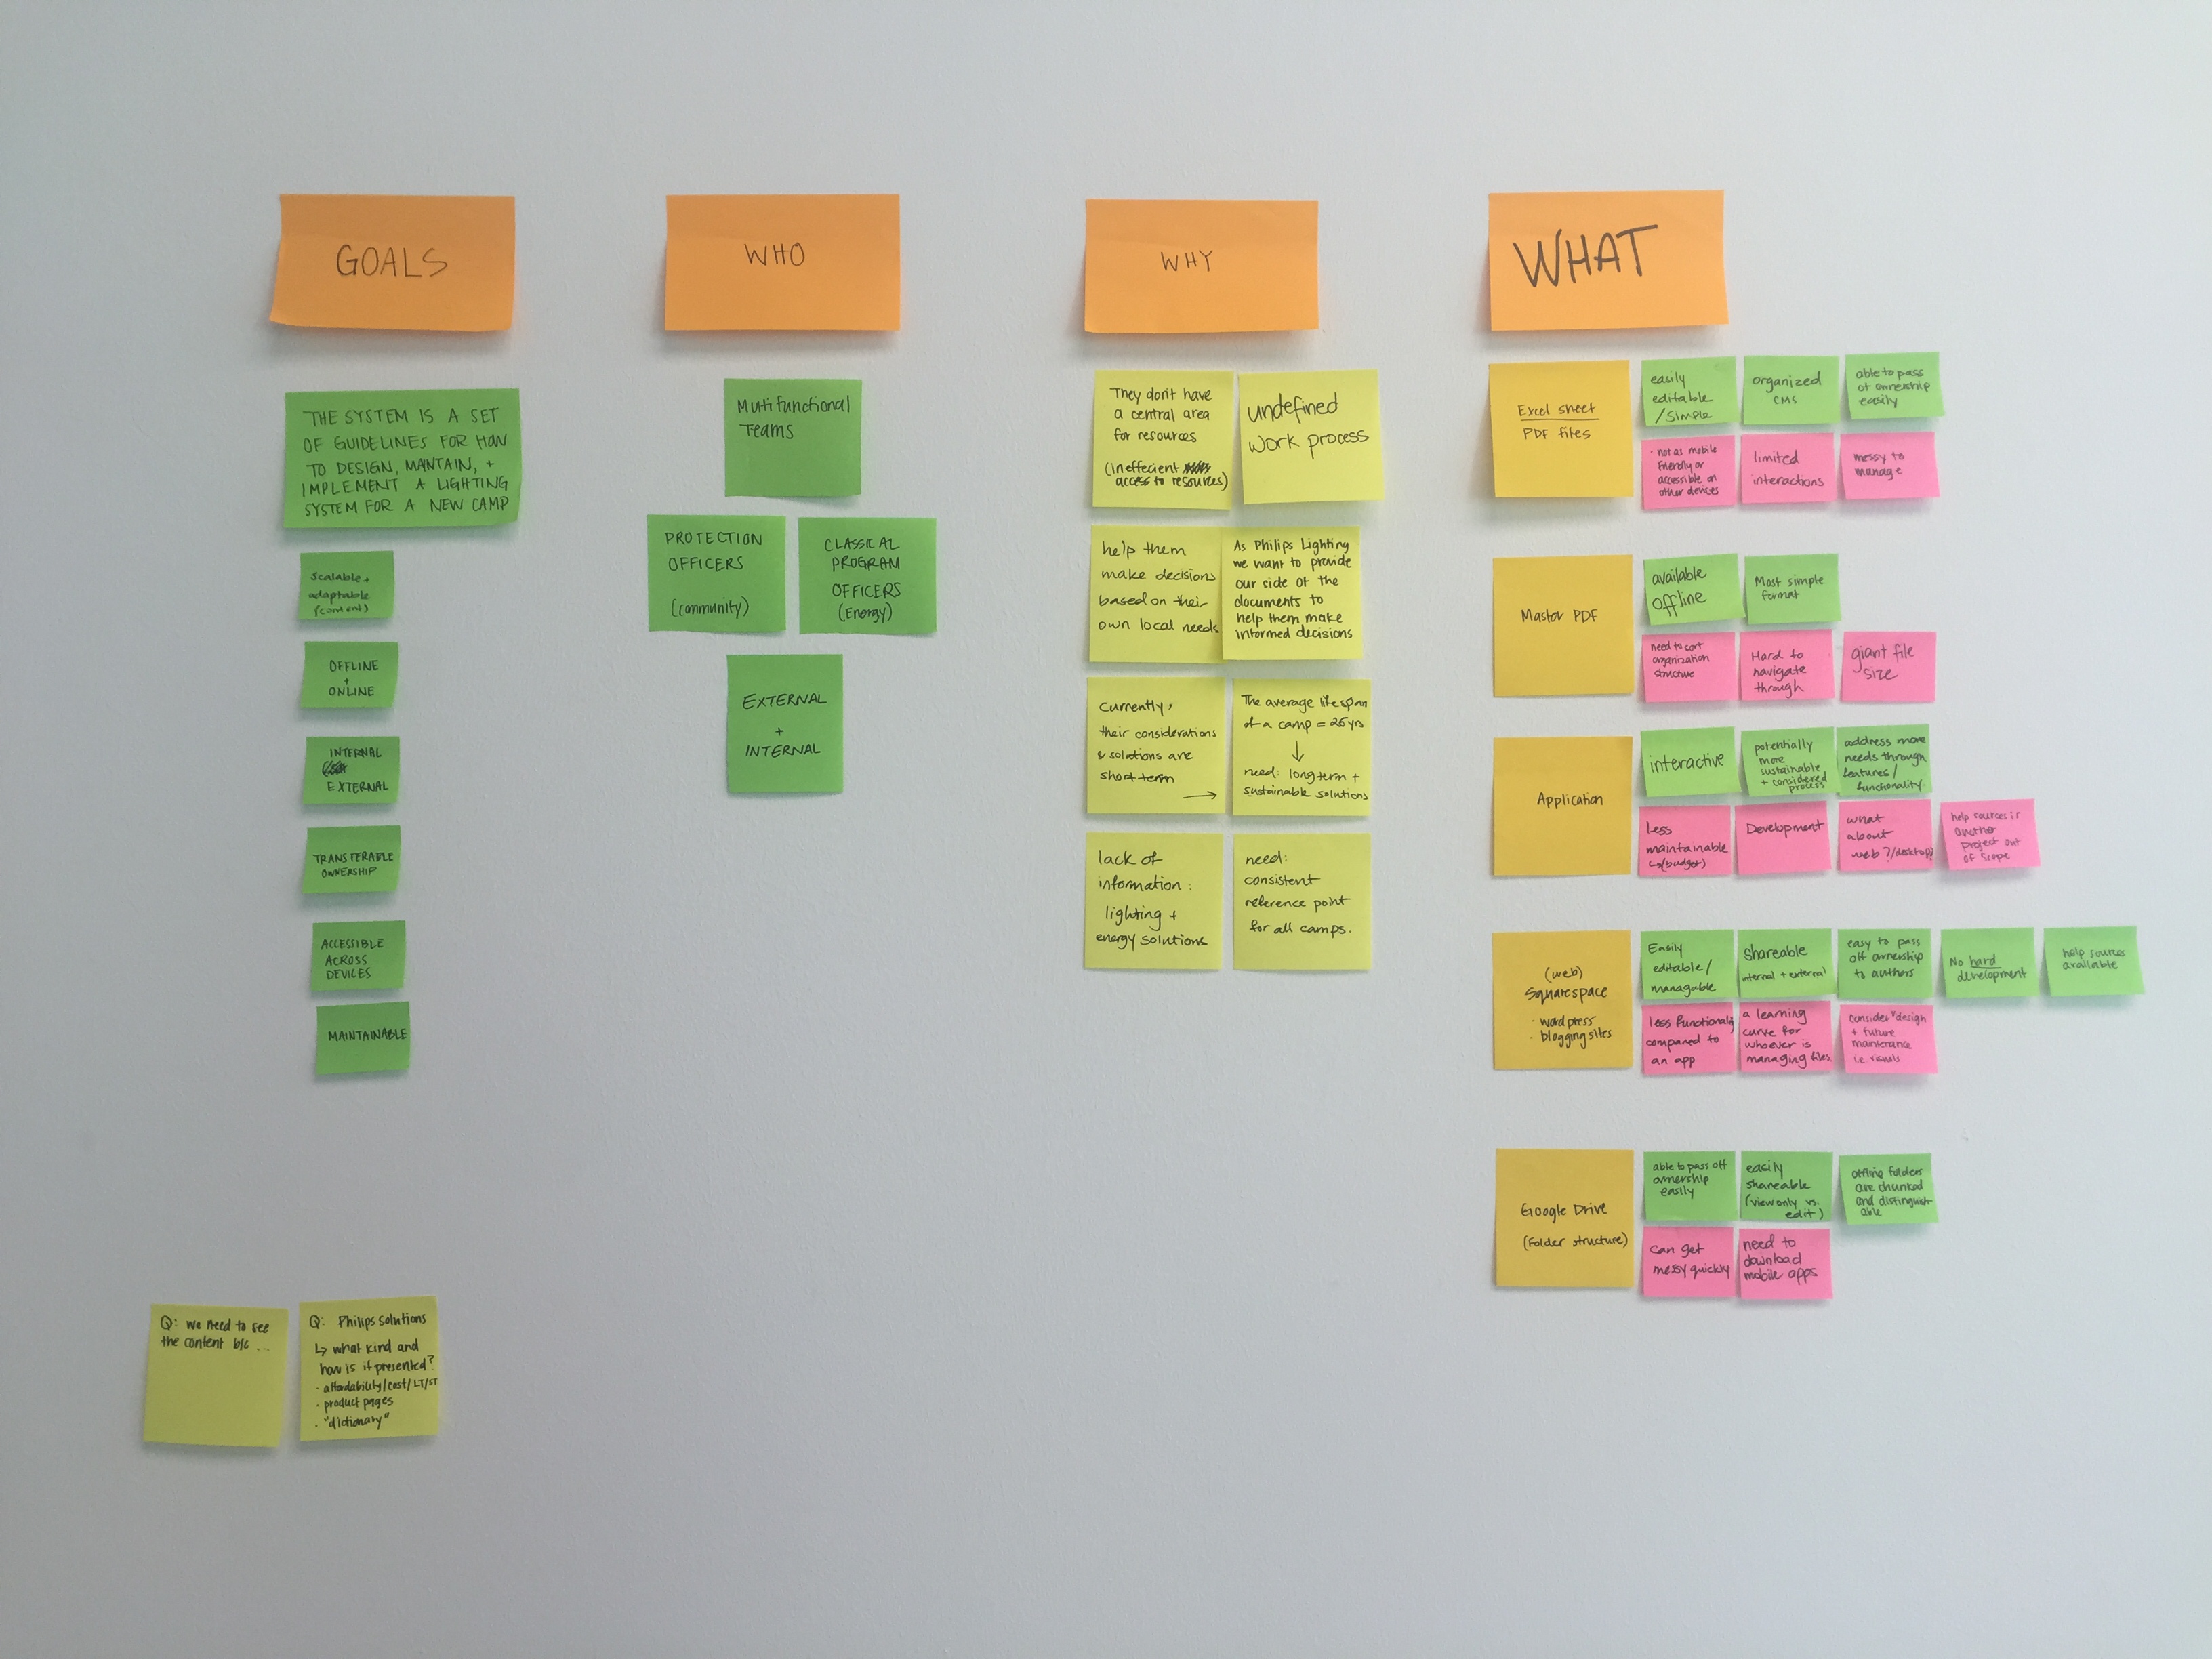 GOALS
THE SYSTEM IS A SET
OF GUIDELINES FOR HOW
TO DESIGN, MAINTAIN, +
IMPLEMENT A LIGHTING
SYSTEM FOR A NEW CAMP
Scalable +
adaptable
(content)
OFFLINE
+
ONLINE
INTERNAL
EXTERNAL
TRANSFERABLE
OWNERSHIP
ACCESSIBLE
ACROSS
DEVICES
MAINTAINABLE
Q: we need to see
the content b/c ...
Q: Philips solutions
↳ what kind and
how is it presented?
· affordability/cost/LT/ST
· product pages
· "dictionary"
WHO
Multifunctional
Teams
PROTECTION
OFFICERS
(community)
CLASSICAL
PROGRAM
OFFICERS
(Energy)
EXTERNAL
+
INTERNAL
WHY
They don't have
a central area
for resources
(ineffecient
access to resources)
undefined
work process
help them
make decisions
based on their
own local needs
As Philips Lighting
we want to provide
our side of the
documents to
help them make
informed decisions
Currently,
their considerations
& solutions are
short-term
→
The average life span
of a camp = 25 yrs
↓
need: long term +
sustainable solutions
lack of
information:
lighting +
energy solutions
need:
consistent
reference point
for all camps.
WHAT
Excel sheet
PDF files
easily
editable
/simple
organized
CMS
able to pass
of ownership
easily
· not as mobile
friendly or
accessible on
other devices
limited
interactions
messy to
manage
Master PDF
available
offline
Most simple
format
need to sort
organization
structure
Hard to
navigate
through
giant file
size
Application
interactive
potentially
more
sustainable
+ considered
process
address more
needs through
features/
functionality.
less
maintainable
↳(budget)
Development
what
about
web?/desktop?
help sources is
another
project out
of scope
(web)
Squarespace
· wordpress
· blogging sites
Easily
editable/
managable
Shareable
internal + external
easy to pass
off ownership
to authors
No hard
development
help sources
available
less functionality
compared to
an app
a learning
curve for
whoever is
managing files
consider design
+ future
maintenance
i.e visuals
Google Drive
(Folder structure)
able to pass off
ownership
easily
easily
shareable
(view only vs.
edit)
offline folders
are chunked
and distinguish
able
can get
messy quickly
need to
download
mobile apps